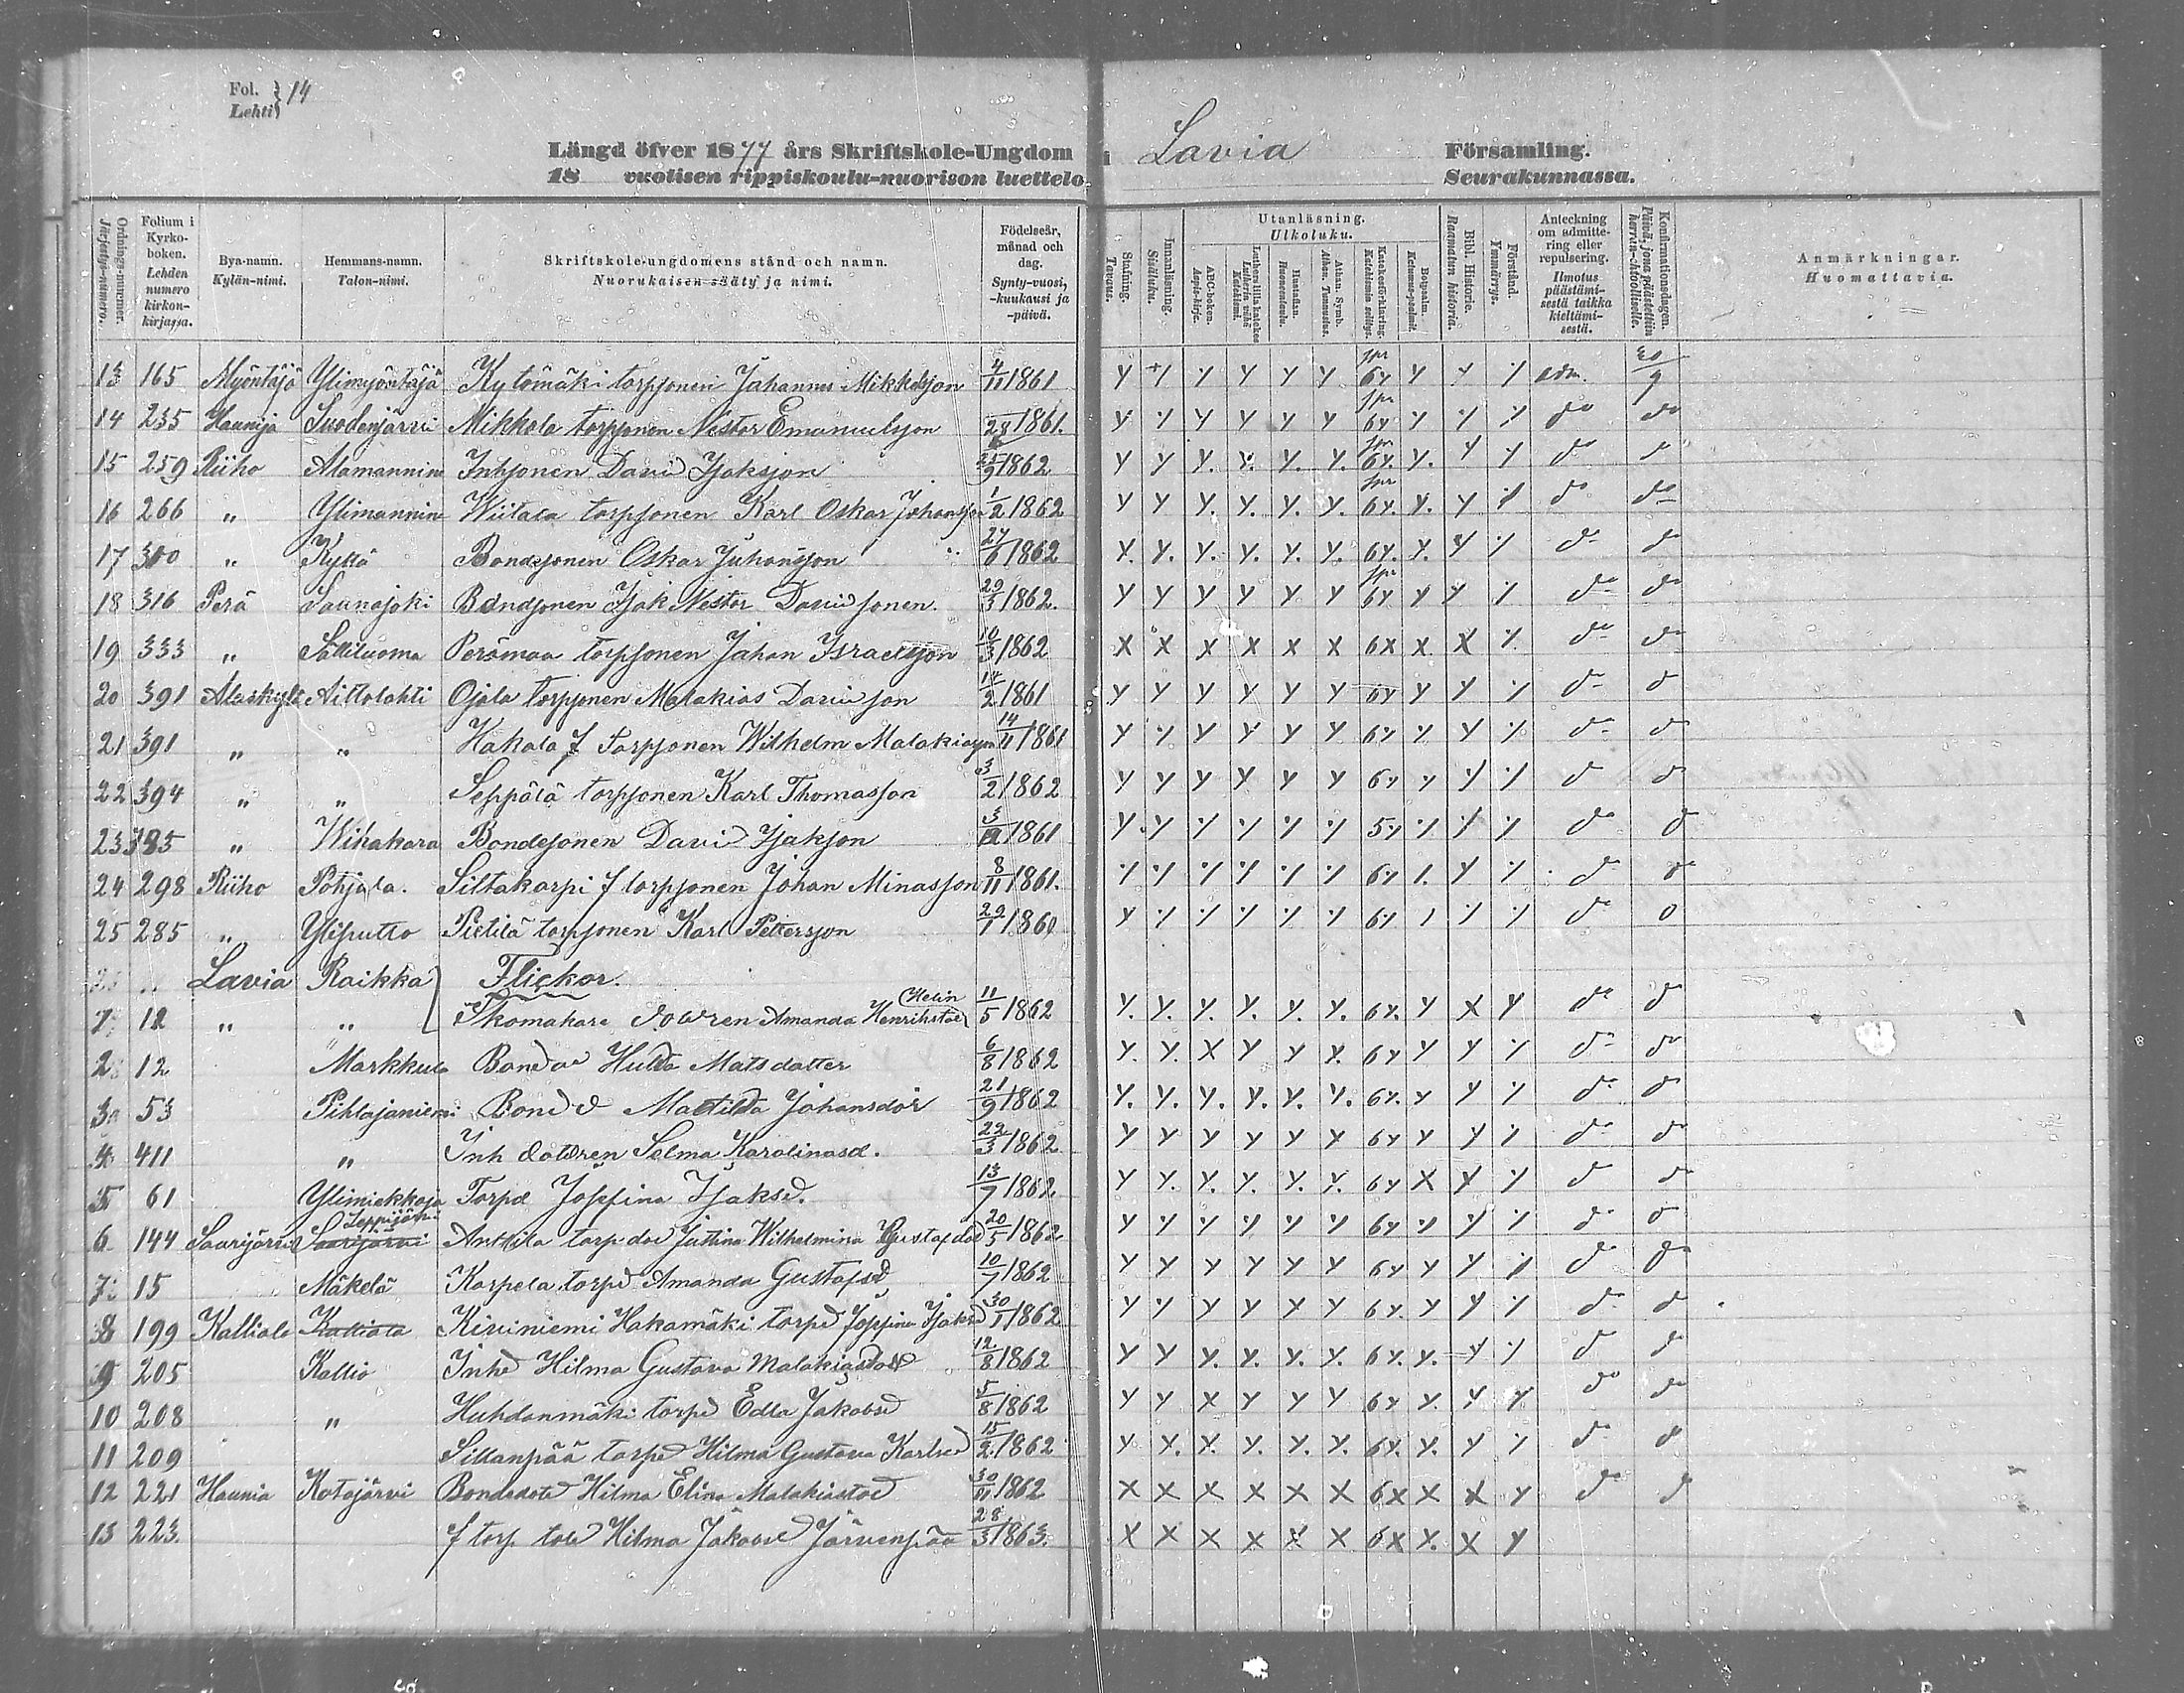 Fol. Lehti 14
Längd öfver 1877 års Skriftskole-Ungdom i Lavia Församling.
18 vuotisen rippiskoulu-nuorison luettelo Seurakunnassa.
Ordnings-nummer. Järjestys-numero.
Folium i Kyrko-boken. Lehden numero kirkon-kirjassa.
Bya-namn. Kylän-nimi.
Hemmans-namn. Talon-nimi.
Skriftskole-ungdomens stånd och namn. Nuorukaisen sääty ja nimi.
Födelseår, månad och dag. Synty-vuosi, -kuukausi ja -päivä.
Stafning. Tavaus.
Innanläsning. Sisäluku.
Utanläsning. Ulkoluku.
ABC-boken. Aapis-kirja.
Lutheri lilla katekes Lutherin vähä Katekismi.
Hustaflan. Huoneentaulu.
Athan. Symb. Athan. Tunnustus.
Katekesförklaring Katekismin selitys.
Botpsalm. Katumus-psalmit.
Bibl. Historie. Raamatun historia.
Förstånd. Ymmärrys.
Anteckning om admittering eller repulsering. Ilmotus päästämisestä taikka kieltämisestä.
Konfirmationsdagen. Päivä, jona päästettiin herran-ehtoolliselle.
Anmärkningar. Huomattavia.
13 165 Myöntäjä Ylimyöntäjä Kytömäki torpsonen Johannes Mikkelsson 4/11 1861 y y y y y y spr 6y y y y adm. 30/9
14 235 Haunija Suodenjärvi Mikkola torpsonen Nestor Emanuelsson 28 1861. y y y y y y spr 6y y y y do do
15 259 Riiho Alamannin Inhsonen David Isaksson 25/9 1862 y y y. y. y. y. spr 6y. y. y y do do
16 266 " Ylimannin Wiitala torpsonen Karl Oskar Johansson 1/2 1862 y y y. y. y. y. spr 6y. y. y y do do
17 300 " Kyttä Bondesonen Oskar Juhansson 24/6 1862 y. y. y. y. y. y. 6y. y. y y do do
18 316 Perä Saunajoki Bondsonen Isak Nestor Davidsonen. 29/3 1862. y y y y y y spr 6y y y y do do
19 333 " Sälliluoma Perämaa torpsonen Johan Israelsson 10/3 1862 x x x x x x 6x x. x y do do
20 391 Alaskylä Aittolahti Ojala torpsonen Malakias Davidson 14/2 1861 y y y y y y 6y y y y do do
21 391 " " Hakala f Torpsonen Wilhelm Malakiasson 14/11 1861 y y y y y y 6y y y y do do
22 394 " " Seppälä torpsonen Karl Thomasson 3/2 1862 y y y y y y 6y y y y do do
23 385 " Wihakara Bondesonen David Isakson 3 1861 y y y y y y 5y y y y do do
24 298 Riiho Pohjala. Siltakorpi f torpsonen Johan Minasson 8/11 1861. y y y y y y 6y y y y do do
25 285 " Yliputto Pietilä torpsonen Karl Pettersson 29/1 1860 y y y y y y 6y y y y do do
Lavia Raikka Flickor.
1 12 " " Skomakare dottren Amanda Henrikstoe Helin 11/5 1862 y. y. y. y. y. y. 6y. y x y do do
2 12 " Markkula Bondoe Hulda Matsdotter 6/8 1862 y. y. x y y y. 6y y y y do do
3 53 Pihlajaniemi Bond d Matilda Johansdor 21/9 1862 y. y. y. y. y. y. 6y. y y y do do
4 411 " Inh dottren Selma Karolinasd. 22/3 1862 y y y y y y 6y y y y do do
5 61 Ylimiekkoja Torpd Josefina Isaksd. 13/7 1862 y y. y. y. y. y. 6y x y y do do
6 144 Saurijärvi Saarijärvi Leppijärvi Anttila torp doe Justina Wilhelmina Gustafdoe 20/5 1862 y y y y y y 6y y y y do do
7 15 Mäkelä Karpela torpd Amanda Gustafsd 10/7 1862 y y y y y y 6y y y y do do
8 199 Kalliala Kalliala Kiviniemi Hakamäki torpd Josefina Isaksd 30/1 1862 y y y y x y 6y. y y y do do
9 205 Kallio Inhd Hilma Gustava Malakiasdotr 12/8 1862 y y y. y. y. y. 6y. y. y y do do
10 208 " Huhdanmäki torpd Edla Jakobsd 5/8 1862 y y x y y y 6y y. y y do do
11 209 Sillanpää torpd Hilma Gustava Karlsd 15/2 1862 y x. x. y. y. y. 6y. y. y y do do
12 221 Haunia Kotajärvi Bondedotr Hilma Elina Malakiastoe 30/11 1862 x x x x x x 6x x x y do do
13 223. f torp tole Hilma Jakobsd Järvenpää 28/3 1863. x x x x x x 6x x. x y